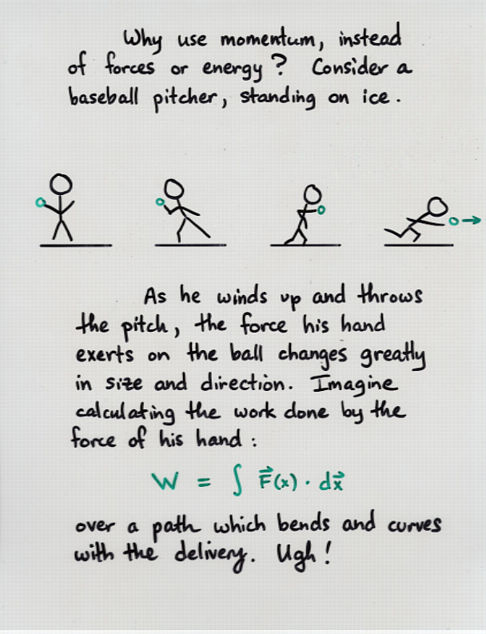 Why use momentum, instead
of forces or energy? Consider a
baseball pitcher, standing on ice.
As he winds up and throws
the pitch, the force his hand
exerts on the ball changes greatly
in size and direction. Imagine
calculating the work done by the
force of his hand:
W = ∫ F⃗(x) · dx⃗
over a path which bends and curves
with the delivery. Ugh!